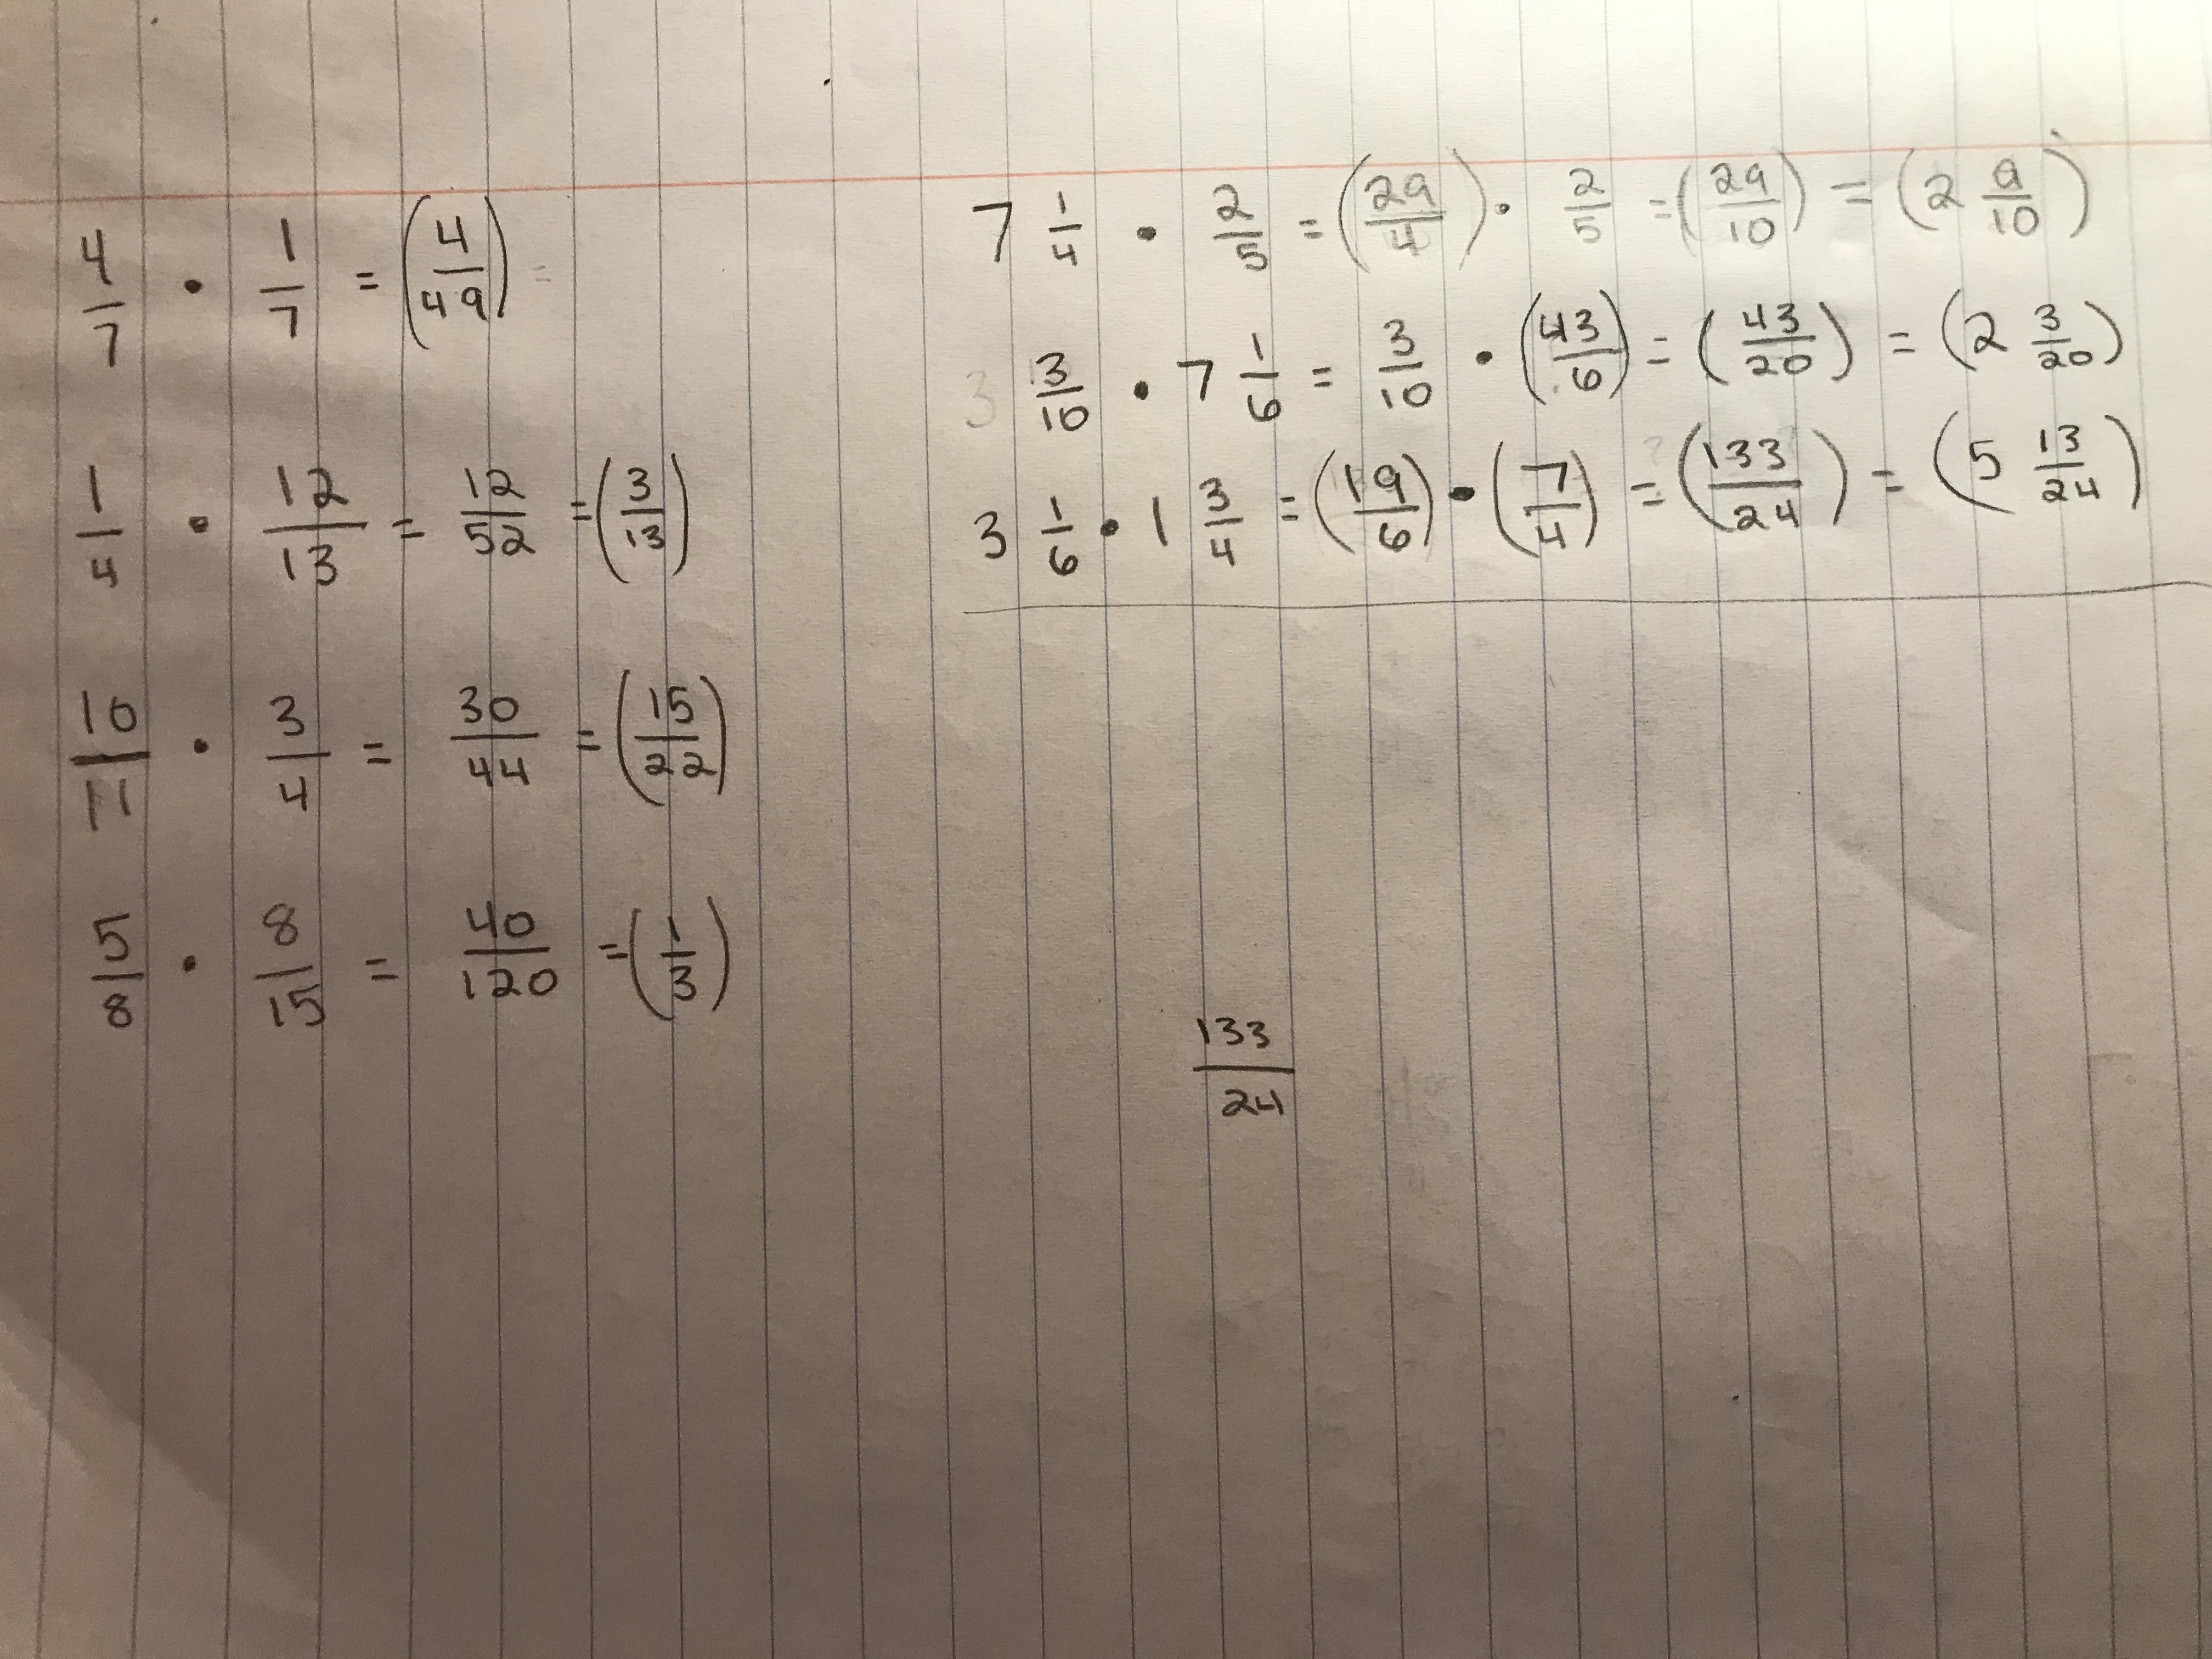 4/7 • 1/7 = (4/49) =
1/4 • 12/13 = 12/52 = (3/13)
10/11 • 3/4 = 30/44 = (15/22)
5/8 • 8/15 = 40/120 = (1/3)
7 1/4 • 2/5 = (29/4) • 2/5 = (29/10) = (2 9/10)
3 3/10 • 7 1/6 = 3/10 • (43/6) = (43/20) = (2 3/20)
3 1/6 • 1 3/4 = (19/6) • (7/4) = (133/24) = (5 13/24)
133/24